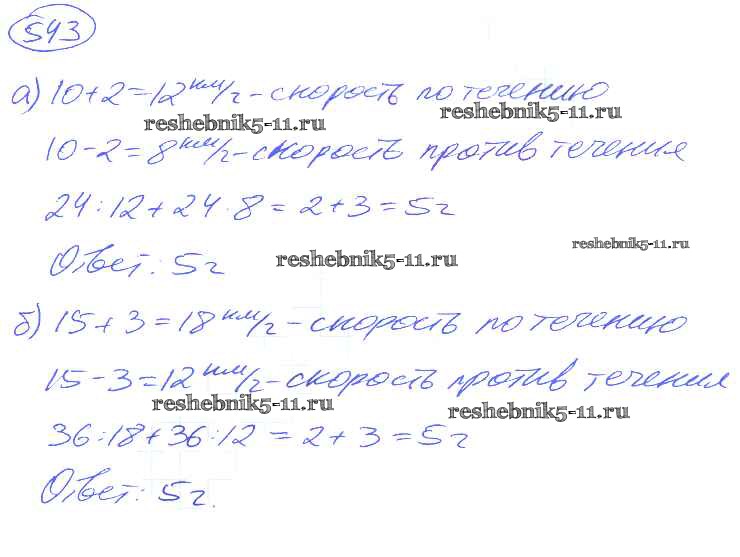 543
а) 10+2=12 км/ч - скорость по течению
reshebnik5-11.ru reshebnik5-11.ru
10-2=8 км/ч - скорость против течения
24:12+24·8=2+3=5ч
reshebnik5-11.ru
Ответ: 5ч
reshebnik5-11.ru
б) 15+3=18 км/ч - скорость по течению
15-3=12 км/ч - скорость против течения
reshebnik5-11.ru reshebnik5-11.ru
36:18+36:12=2+3=5ч
Ответ: 5ч.